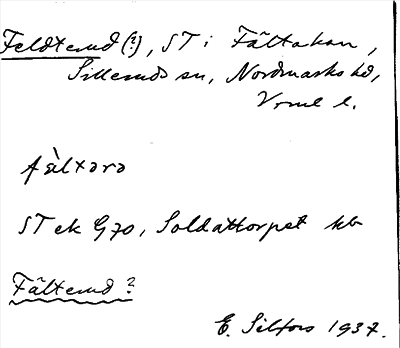 Feldterud (?), ST i Fältakan,
Silleruds sn, Nordmarks hd,
Vrml l.
fæ̀ltərə
ST ek G70, Soldattorpet kb
Fälterud ?
E. Silfors 1937.